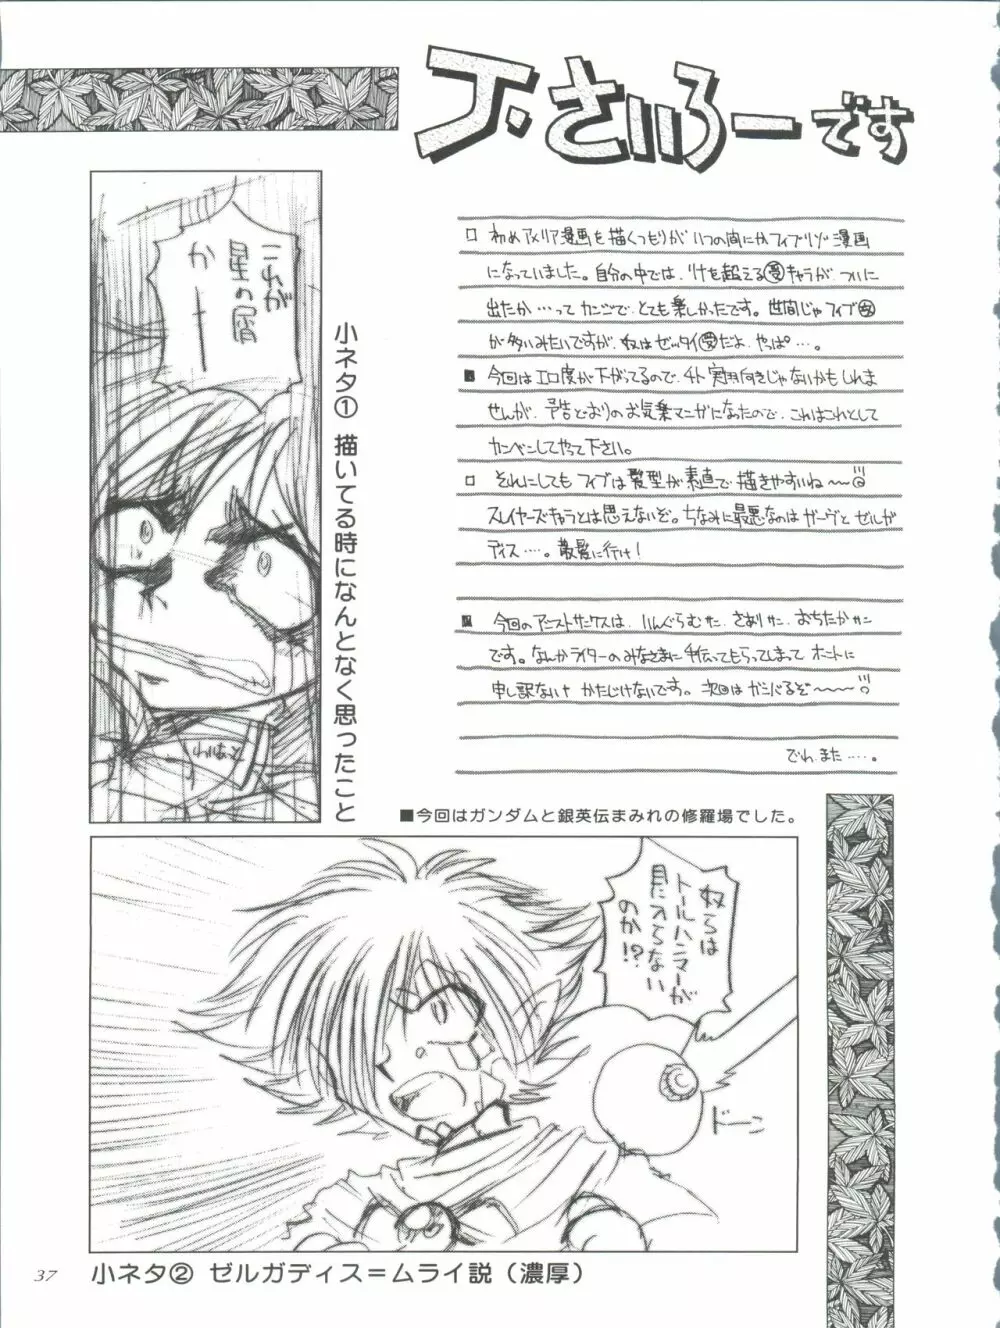 J.さいろーです
□ 初めアメリア漫画を描くつもりが いつの間にかフィブリゾ漫画
になっていました。自分の中では、リナを超える㊤キャラが ついに
出たか…って カンジで とても楽しかったです。世間じゃフィブ攻
が多いみたいですが、奴はゼッタイ受だよ、やっぱ…。
■ 今回はエロ度が下がってるので、チト実用向きじゃないかもしれま
せんが、予告どおりのお気楽マンガになたので、これはこれとして
カンベンしてやって下さい。
□ それにしても フィブは髪型が素直で 描きやすいね〜〜
スレイヤーズキャラとは思えないぞ。ちなみに最悪なのは ガーヴと ゼルガ
ディス…。散髪に行け!
■ 今回のアシストサンクスは、
です。なんかライターのみなさまに手伝ってもらってしまって ホントに
申し訳ないけ かたじけないです。次回はガンバるぞ〜〜〜!!
でわ、また…。
■今回はガンダムと銀英伝まみれの修羅場でした。
これが
星の屑
かーー
小ネタ① 描いてる時になんとなく思ったこと
奴らは
トールハンマーが
目に入らない
のか!?
ドーン
小ネタ② ゼルガディス＝ムライ説（濃厚）
37